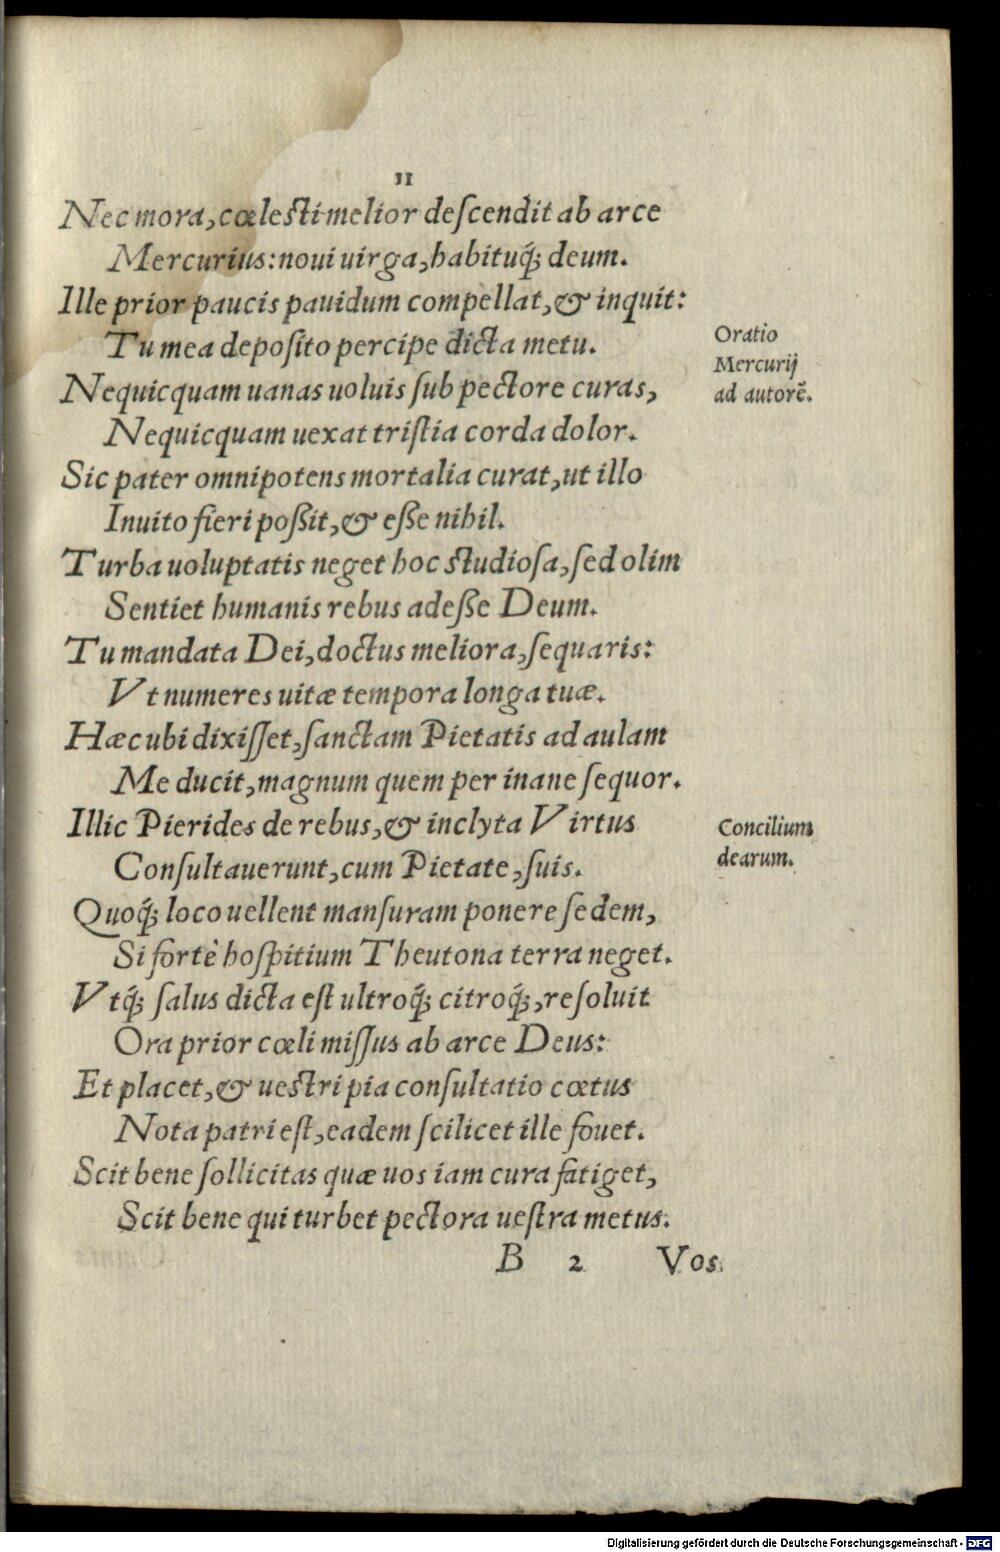 11
Nec mora, cœlesti melior descendit ab arce
Mercurius: noui uirga, habituq́; deum.
Ille prior paucis pauidum compellat, & inquit:
Tu mea deposito percipe dicta metu.
Oratio
Mercurij
ad autorẽ.
Nequicquam uanas uoluis sub pectore curas,
Nequicquam uexat tristia corda dolor.
Sic pater omnipotens mortalia curat, ut illo
Inuito fieri poßit, & eße nihil.
Turba uoluptatis neget hoc studiosa, sed olim
Sentiet humanis rebus adeße Deum.
Tu mandata Dei, doctus meliora, sequaris:
Vt numeres uitæ tempora longa tuæ.
Hæc ubi dixisset, sanctam Pietatis ad aulam
Me ducit, magnum quem per inane sequor.
Illic Pierides de rebus, & inclyta Virtus
Consultauerunt, cum Pietate, suis.
Concilium
dearum.
Quoq́; loco uellent mansuram ponere sedem,
Si fortè hospitium Theutona terra neget.
Vtq́; salus dicta est ultroq́; citroq́;, resoluit
Ora prior cœli missus ab arce Deus:
Et placet, & uestri pia consultatio cœtus
Nota patri est, eadem scilicet ille fouet.
Scit bene sollicitas quæ uos iam cura fatiget,
Scit bene qui turbet pectora uestra metus.
B 2 Vos
Digitalisierung gefördert durch die Deutsche Forschungsgemeinschaft - DFG